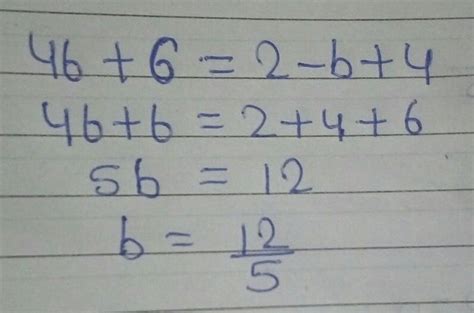 4b + 6 = 2 - b + 4
4b + b = 2 + 4 + 6
5b = 12
b = 12/5